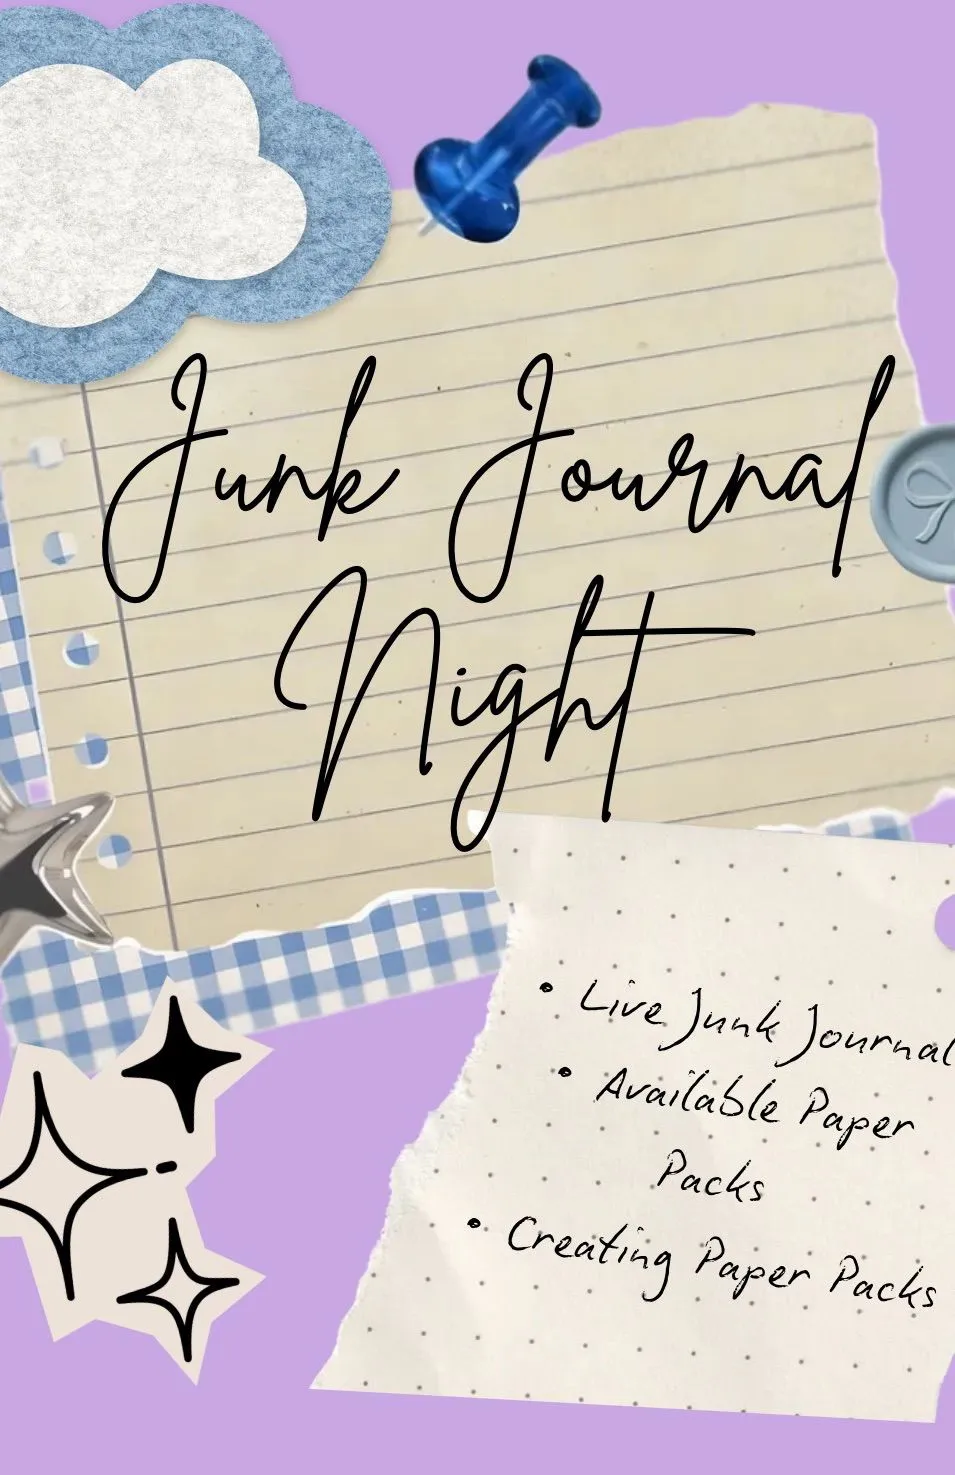 Junk Journal
Night
• Live Junk Journal
• Available Paper
Packs
• Creating Paper Packs